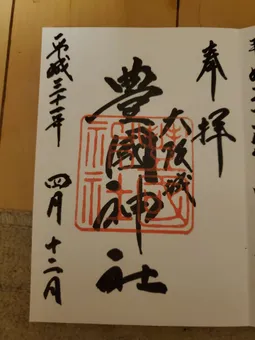 奉拝
大阪城
豊國神社
平成三十一年
四月十二日